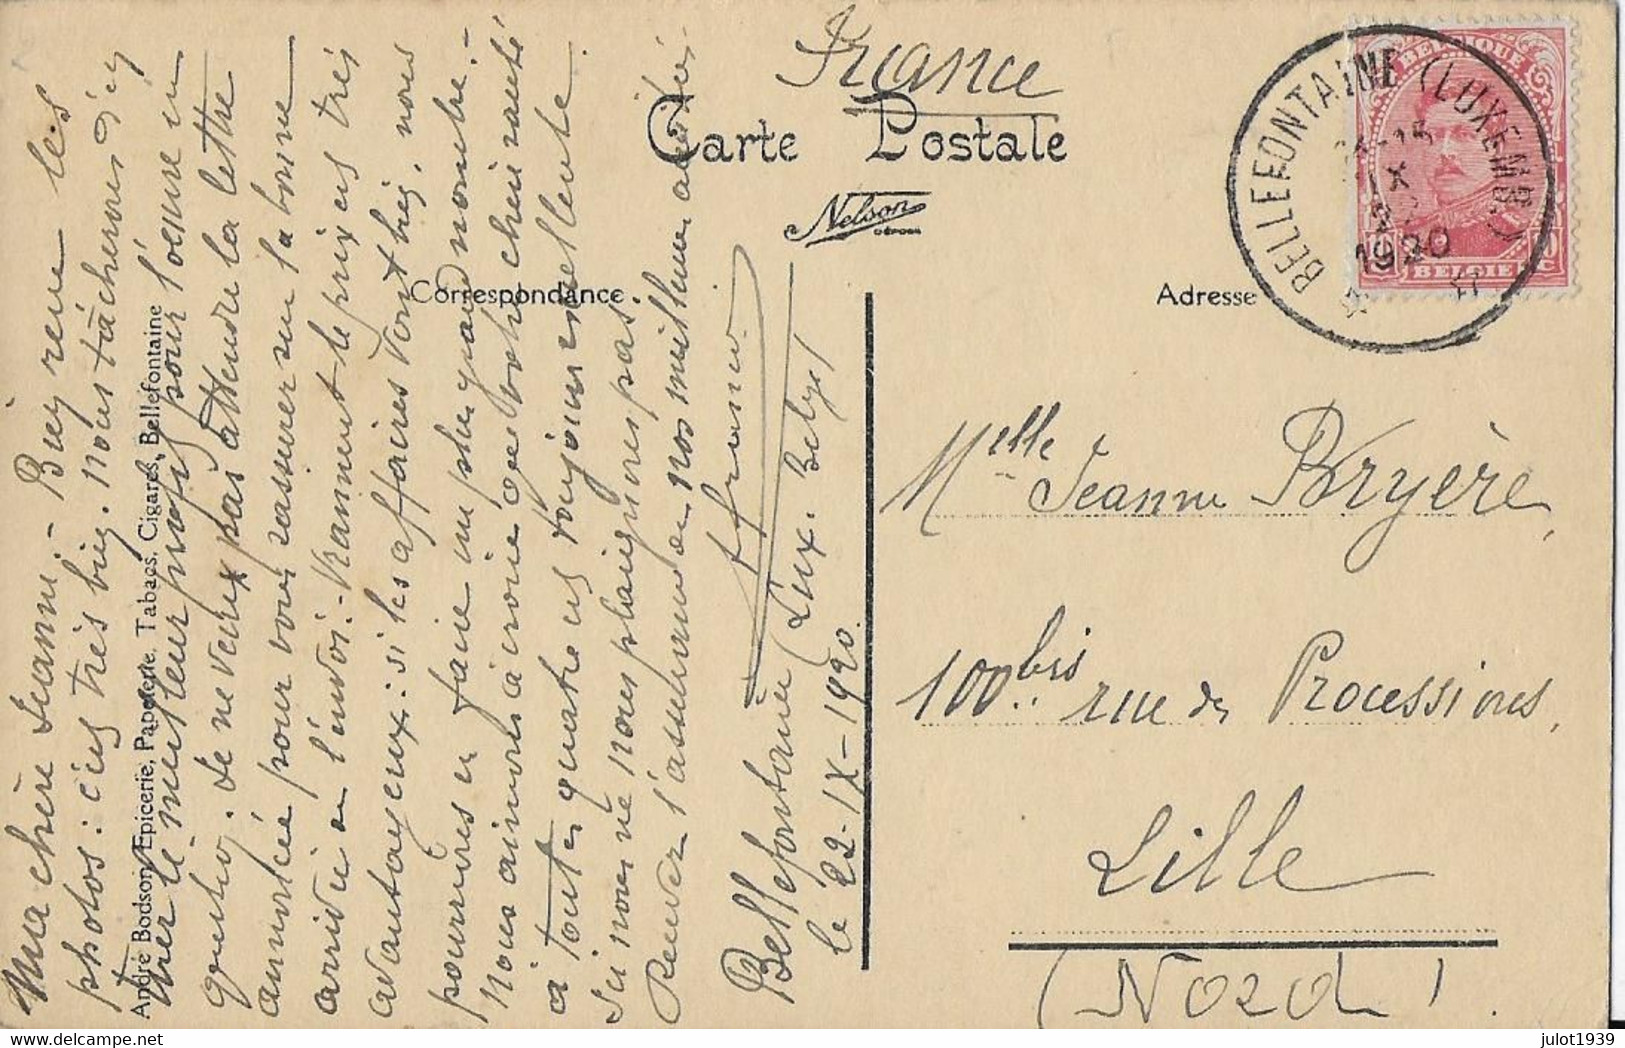 France
Carte Postale
Nelson
Correspondance
Adresse
BELLEFONTAINE (LUXEMB.)
15
IX
1920
BELGIQUE
BELGIE
10 c
Melle Jeanne Bryère,
100bis rue des Processions,
Lille
(Nord).
André Bodson, Epicerie, Papeterie, Tabacs, Cigares, Bellefontaine
Ma chère Jeanne, - Bien reçu les
photos: c'est très bien. Nous tâcherons d'en
tirer le meilleur profit pour l'œuvre en
question. Je ne veux pas attendre la lettre
annoncée pour vous rassurer sur la bonne
arrivée de l'envoi. - Vraiment le prix est très
avantageux: si les affaires vont bien, nous
pourrions en faire un plus grand nombre. -
Nous aimons à croire que votre chère santé
à toutes quatre est toujours excellente.
Ici nous ne nous plaignons pas.
Recevez l'assurance de nos meilleurs amitiés.
Bellefontaine (Lux. Belge)
le 22-IX-1920.
julot1939